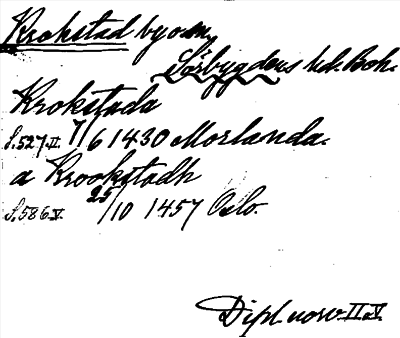 Krokstad by o sn,
Sörbygdens hd. Boh.
Krokstada
S.527.II. 7/6 1430 Morlanda.
a Krookstadh
S.586.V. 25/10 1457 Oslo.
Dipl norv. II. V.